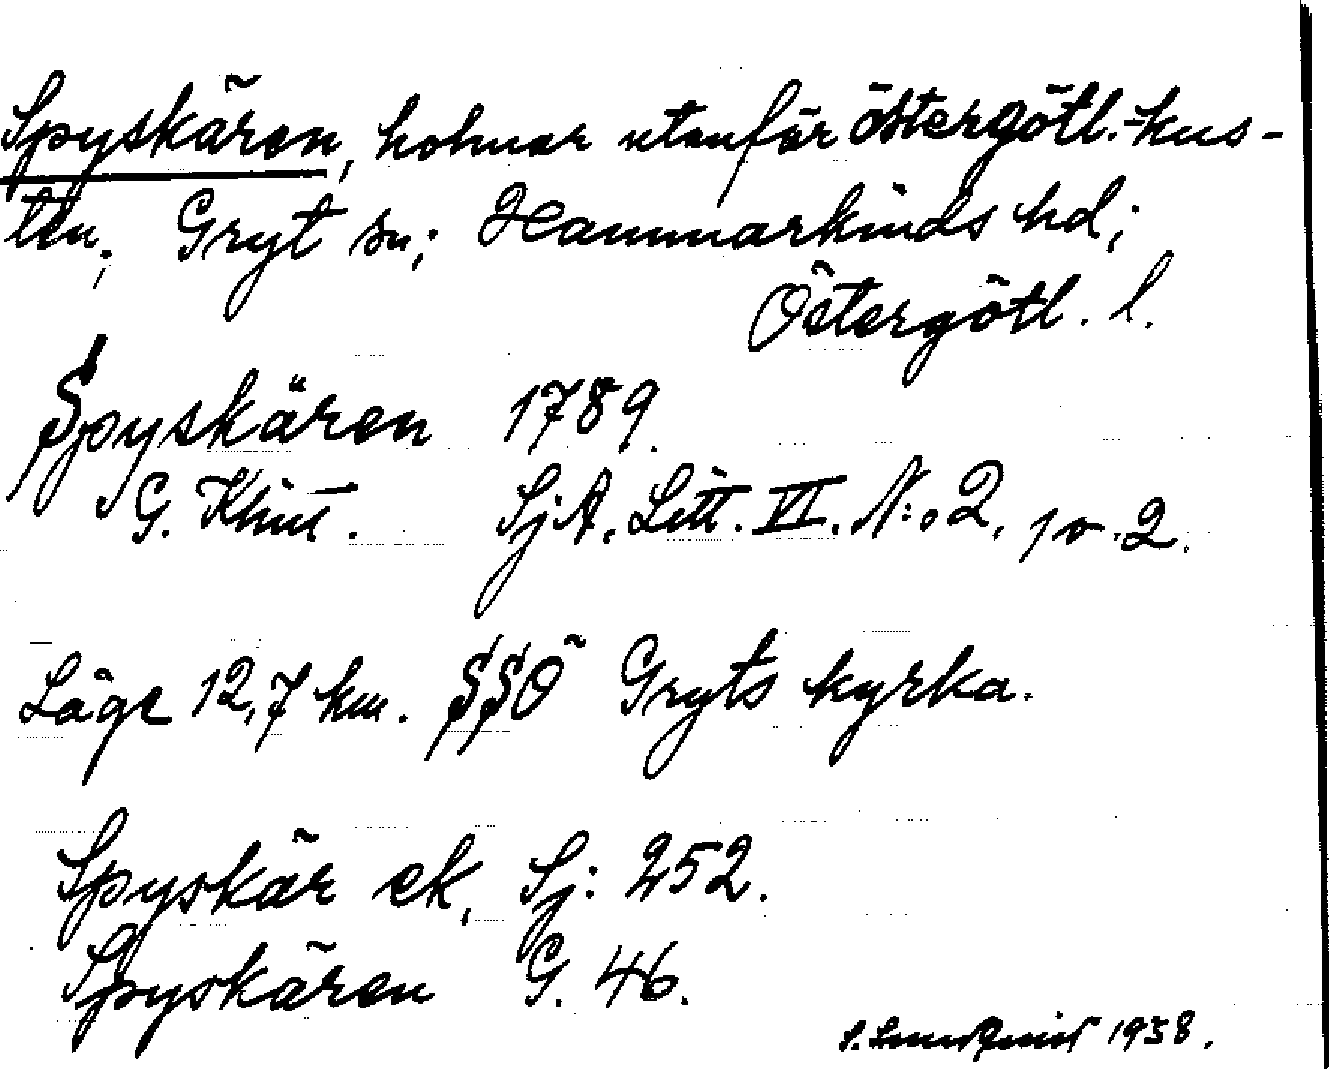 Spyskären, holmar utanför Östergötl.-kus-
ten; Gryt sn; Hammarkinds hd;
Östergötl. l.
Spyskären 1789.
G. Klint. SjA. Litt. VI. N:o 2, pr. 2.
Läge 12,7 km. SSÖ Gryts kyrka.
Spyskär ek, Sj: 252.
Spyskären G. 46.
S. Lundquist 1938.